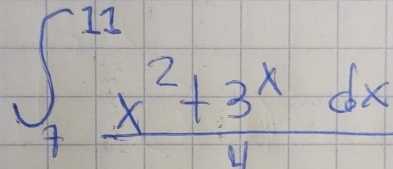 ∫₇¹¹ (x² + 3ˣ dx) / 4